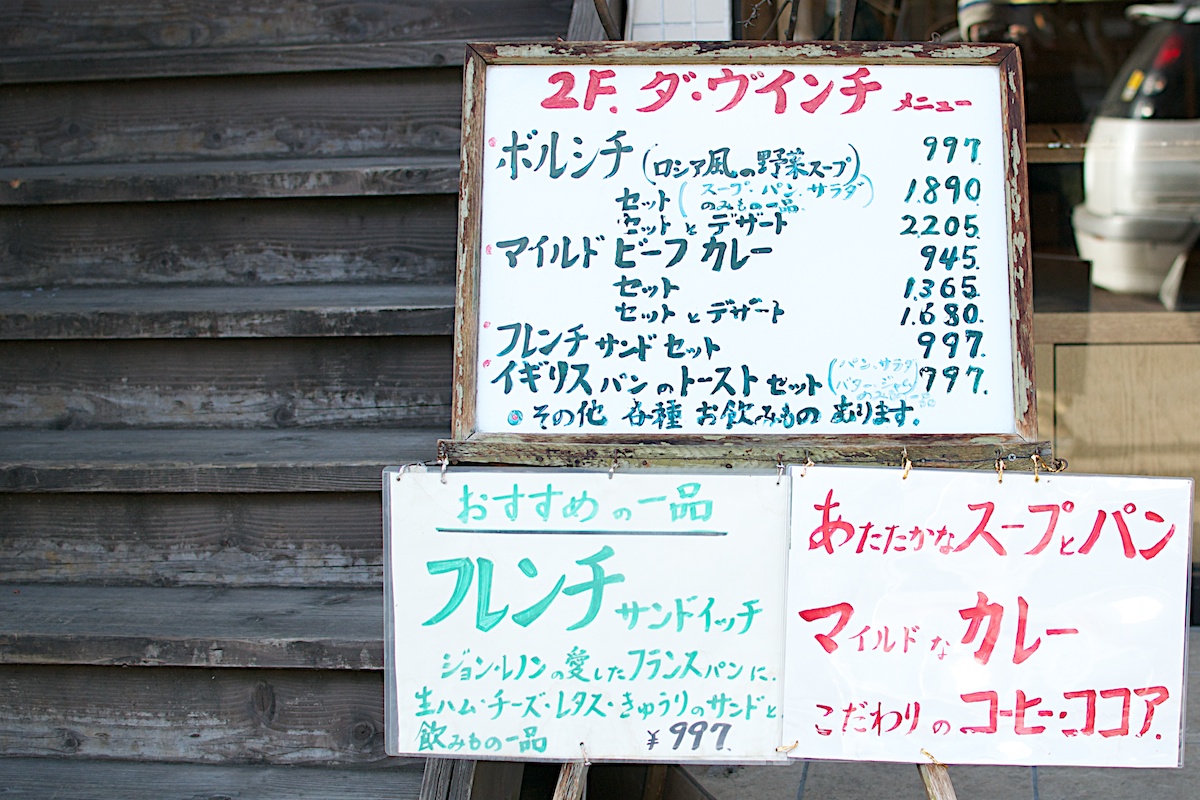 2F. ダ・ヴインチ メニュー
ボルシチ (ロシア風の野菜スープ) 997
セット (スープ・パン、サラダ のみもの一品) 1.890
セットとデザート 2205
マイルド ビーフ カレー 945.
セット 1.365
セットとデザート 1.680.
フレンチ サンド セット 997.
イギリスパンのトースト セット (パン、サラダ バター・ジャム のみもの一品) 997.
その他 各種 お飲みもの あります.
おすすめの一品
フレンチ サンドイッチ
ジョン・レノンの愛したフランスパンに.
生ハム・チーズ・レタス・きゅうりのサンドと.
飲みもの一品 ¥997.
あたたかなスープとパン
マイルドなカレー
こだわりのコーヒー・ココア.